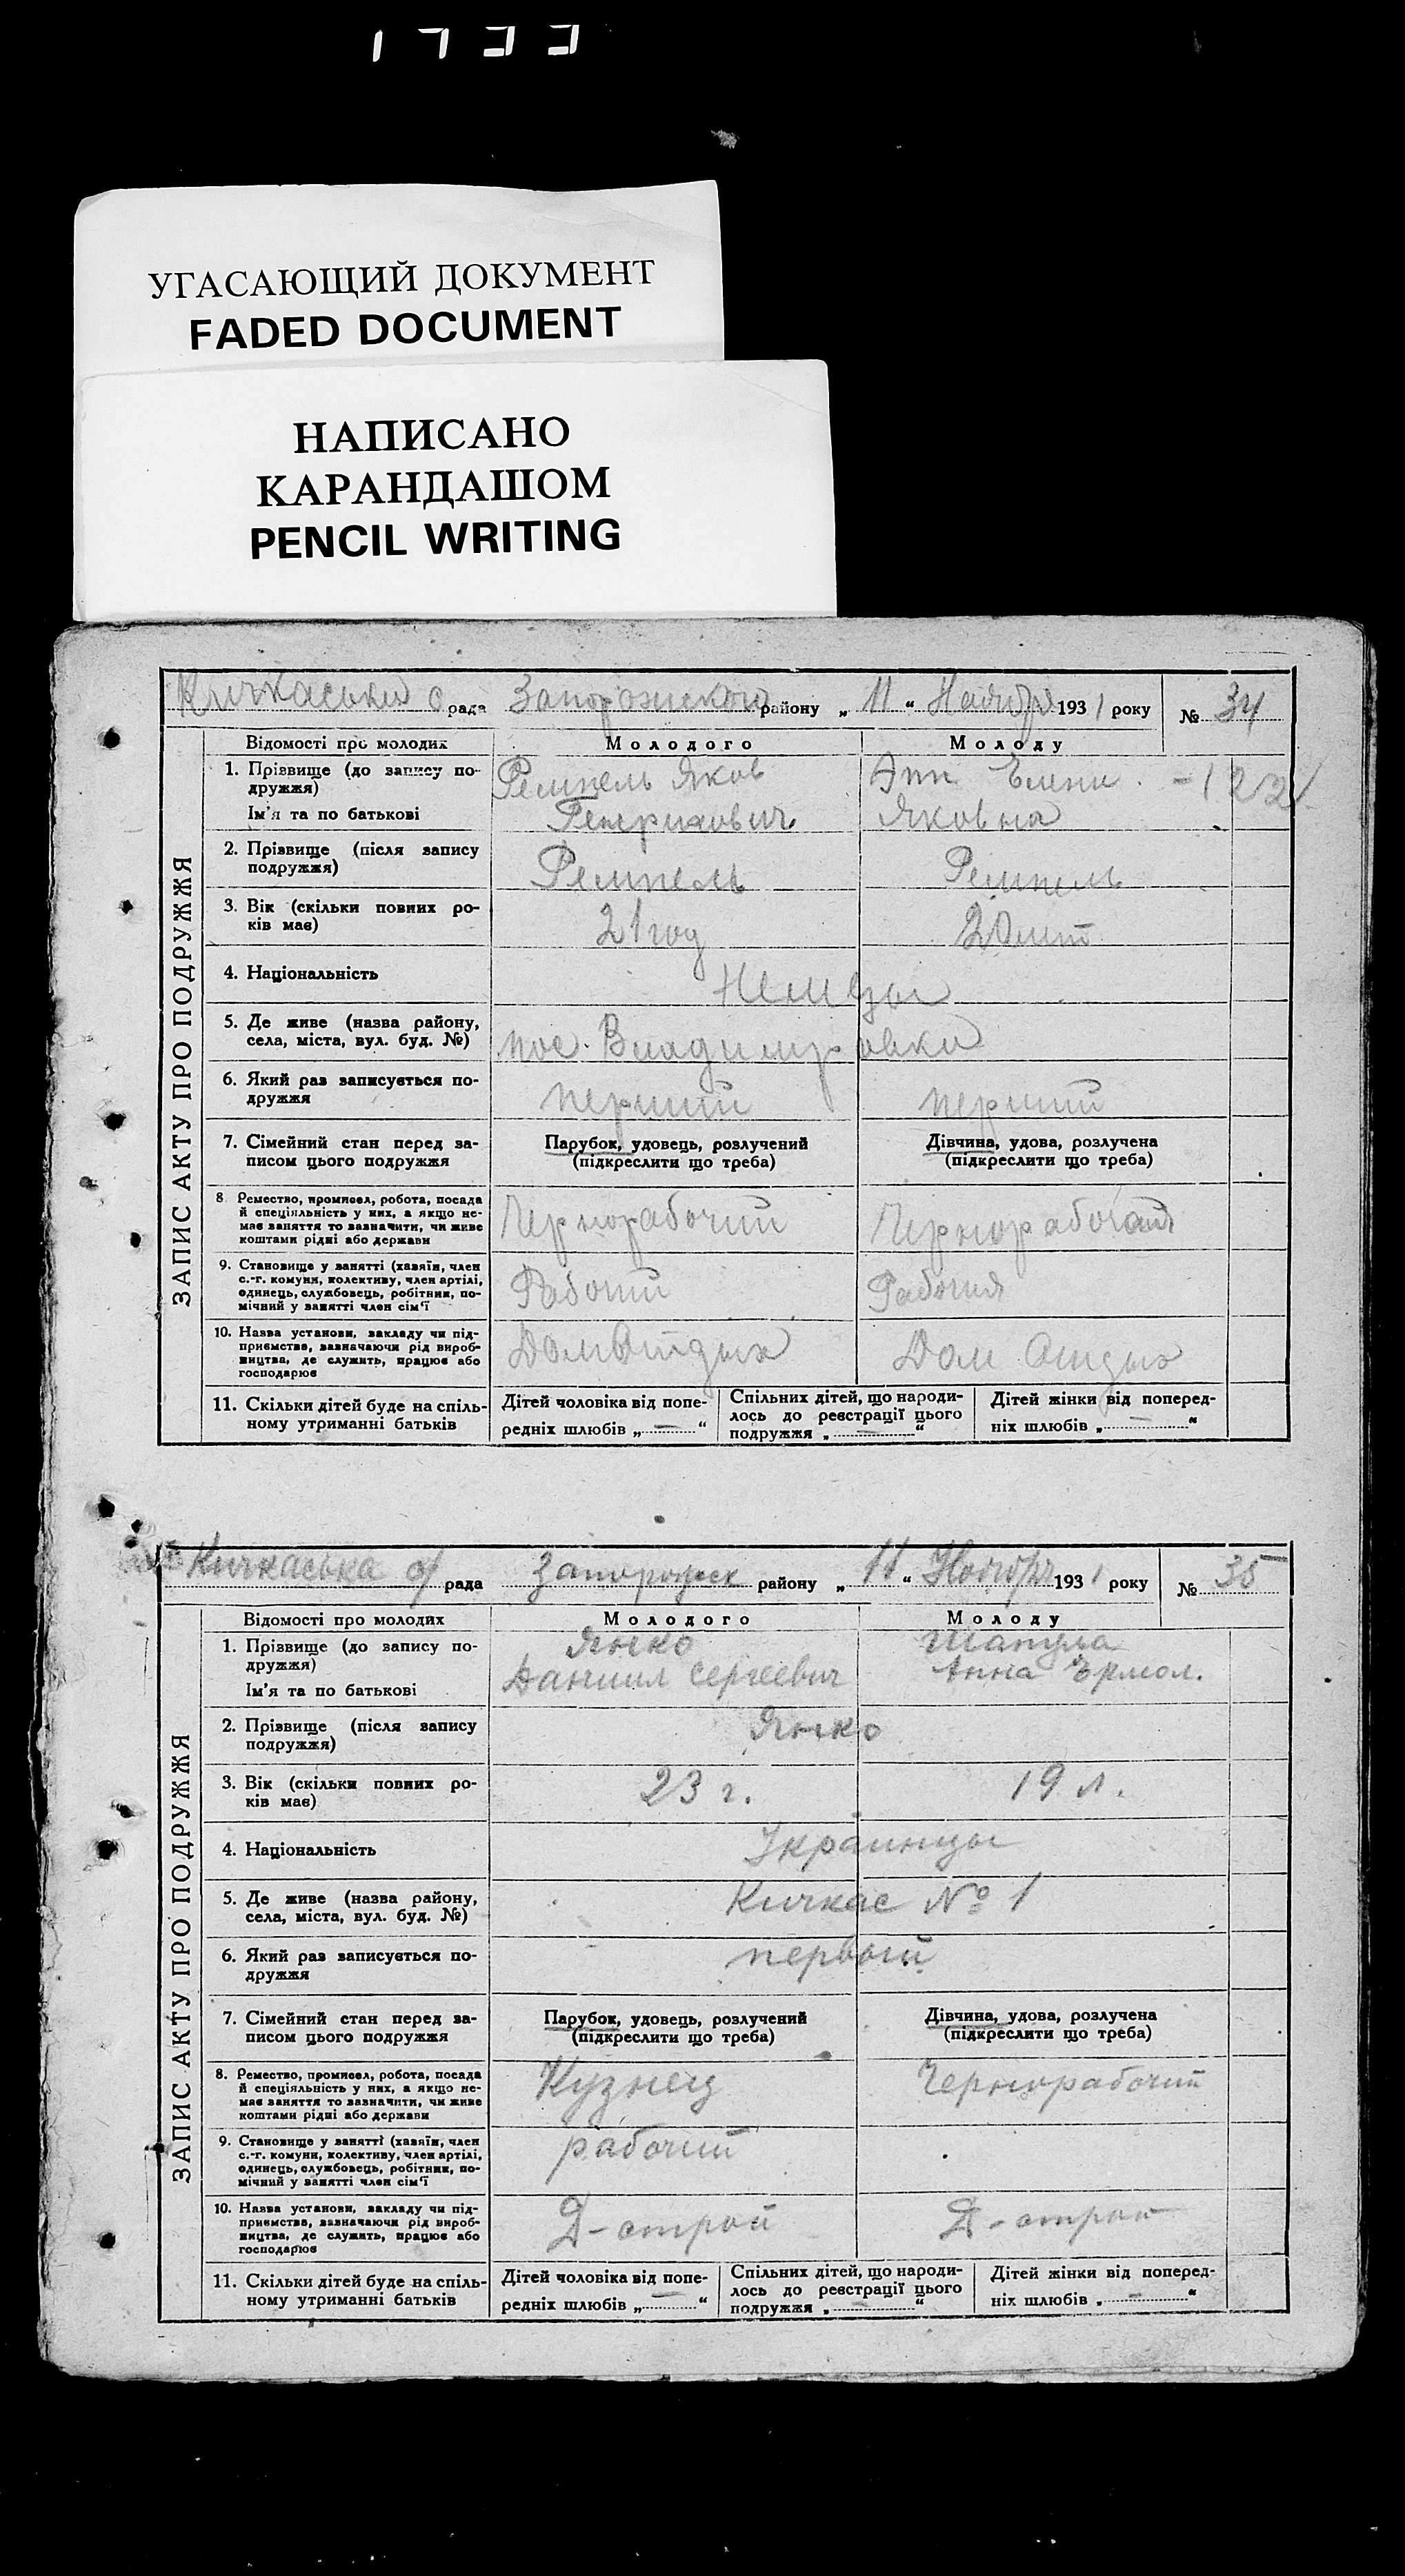 1733
УГАСАЮЩИЙ ДОКУМЕНТ
FADED DOCUMENT
НАПИСАНО
КАРАНДАШОМ
PENCIL WRITING
ЗАПИС АКТУ ПРО ПОДРУЖЖЯ
Кичкаський с рада Запорожского району „ 11 “ Ноября 1931 року № 34
Відомості про молодих Молодого Молоду
1. Прізвище (до запису по- Ремпель Яков Эпп Елени - 1221
дружжя)
Ім'я та по батькові Генрихович Яковна
2. Прізвище (після запису Ремпель Ремпель
подружжя)
3. Вік (скільки повних ро- 21 год 20 лет
ків має)
4. Національність Немцы
5. Де живе (назва району, пос. Владимировка
села, міста, вул. буд. №)
6. Який раз записується по- перший перший
дружжя
7. Сімейний стан перед за- Парубок, удовець, розлучений Дівчина, удова, розлучена
писом цього подружжя (підкреслити що треба) (підкреслити що треба)
8 Ремество, промисел, робота, посада Чернорабочий Чернорабочая
й спеціяльність у них, а якщо не-
має заняття то зазначити, чи живе
коштами рідні або держави
9. Становище у занятті (хазяїн, член Рабочий Рабочия
с.-г. комуни, колективу, член артілі,
одинець, службовець, робітник, по-
мічний у занятті член сім'ї
10. Назва установи, закладу чи під- Дом Отдых Дом Отдых
приємства, зазначаючи рід вироб-
ництва, де служить, працює або
господарює
11. Скільки дітей буде на спіль- Дітей чоловіка від попе- Спільних дітей, що народи- Дітей жінки від поперед-
ному утриманні батьків редніх шлюбів „ — “ лось до реєстрації цього ніх шлюбів „ — “
подружжя „ — “
ЗАПИС АКТУ ПРО ПОДРУЖЖЯ
Кичкаська с/ рада Запорожск району „ 11 “ Ноября 1931 року № 35
Відомості про молодих Молодого Молоду
1. Прізвище (до запису по- Янко Шапула
дружжя) Даниил Сергеевич Анна Ермол.
Ім'я та по батькові
2. Прізвище (після запису Янко
подружжя)
3. Вік (скільки повних ро- 23 г. 19 л.
ків має)
4. Національність Украинцы
5. Де живе (назва району, Кичкас № 1
села, міста, вул. буд. №)
6. Який раз записується по- первый
дружжя
7. Сімейний стан перед за- Парубок, удовець, розлучений Дівчина, удова, розлучена
писом цього подружжя (підкреслити що треба) (підкреслити що треба)
8. Ремество, промисел, робота, посада Кузнец Чернорабочий
й спеціяльність у них, а якщо не-
має заняття то зазначити, чи живе
коштами рідні або держави
9. Становище у занятті (хазяїн, член рабочий
с.-г. комуни, колективу, член артілі,
одинець, службовець, робітник, по-
мічний у занятті член сім'ї
10. Назва установи, закладу чи під- Д-строй Д-строй
приємства, зазначаючи рід вироб-
ництва, де служить, працює або
господарює
11. Скільки дітей буде на спіль- Дітей чоловіка від попе- Спільних дітей, що народи- Дітей жінки від поперед-
ному утриманні батьків редніх шлюбів „ — “ лось до реєстрації цього ніх шлюбів „ — “
подружжя „ — “